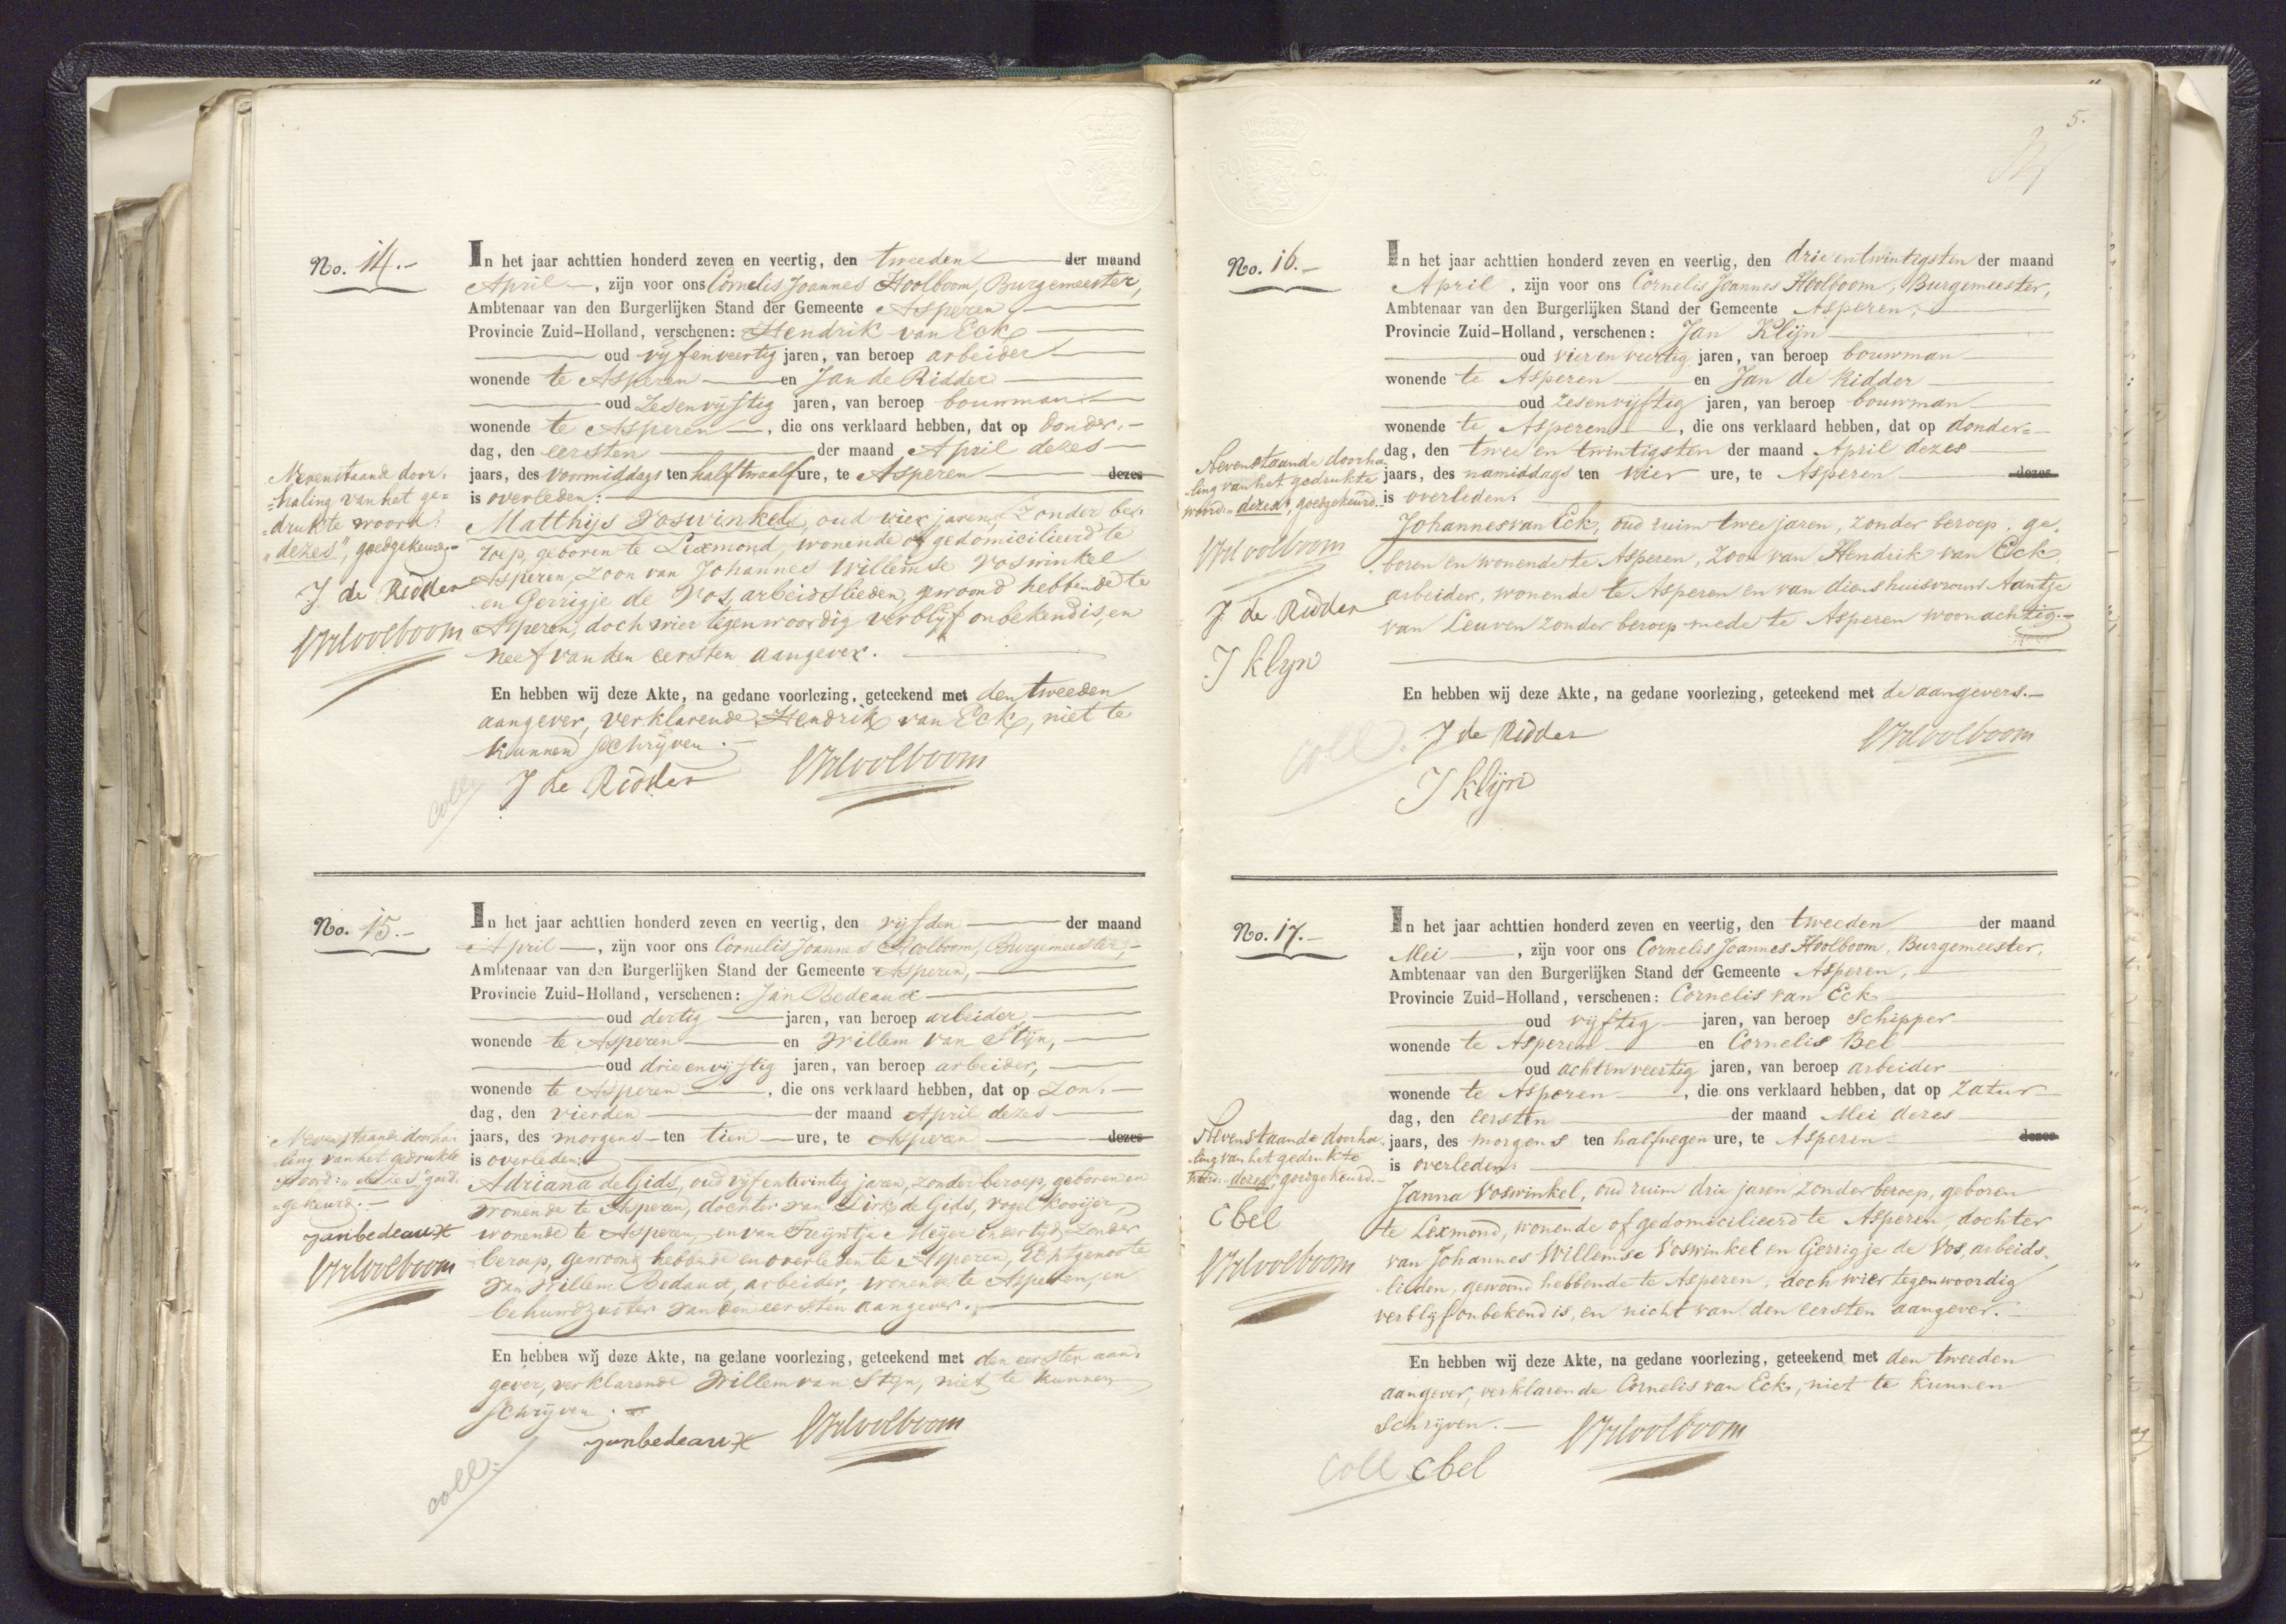 No. 14.-
In het jaar achttien honderd zeven en veertig, den tweeden der maand
April, zijn voor ons Cornelis Joannes Hoolboom, Burgemeester,
Ambtenaar van den Burgerlijken Stand der Gemeente Asperen
Provincie Zuid-Holland, verschenen: Hendrik van Eck
oud vijfenveertig jaren, van beroep arbeider
wonende te Asperen en Jan de Ridder
oud Zesenvijftig jaren, van beroep bouwman
wonende te Asperen, die ons verklaard hebben, dat op donder-
dag, den eersten der maand April dezes
jaars, des voormiddags ten half twaalf ure, te Asperen dezes
is overleden:
Matthijs Voswinkel, oud vier jaren, Zonder be-
roep, geboren te Lexmond, wonende of gedomicilieerd te
Asperen, zoon van Johannes Willemse Voswinkel
en Gerrigje de Vos, arbeidslieden, gewoond hebbende te
Asperen, doch wier tegenwoordig verblijf onbekend is, en
neef van den eersten aangever.
En hebben wij deze Akte, na gedane voorlezing, geteekend met den tweeden
aangever, verklarende Hendrik van Eck, niet te
kunnen schrijven.
J de Ridder
CJHoolboom
coll.
Nevenstaande door-
haling van het ge-
drukte woord:
"dezes", goedgekeurd.-
J. de Ridder
CJHoolboom
No. 15.-
In het jaar achttien honderd zeven en veertig, den vijfden der maand
April, zijn voor ons Cornelis Joannes Hoolboom, Burgemeester,
Ambtenaar van den Burgerlijken Stand der Gemeente Asperen,
Provincie Zuid-Holland, verschenen: Jan Bedeaux
oud dertig jaren, van beroep arbeider,
wonende te Asperen en Willem van Stijn,
oud drieenvijftig jaren, van beroep arbeider,
wonende te Asperen, die ons verklaard hebben, dat op Zon-
dag, den vierden der maand April dezes
jaars, des morgens ten tien ure, te Asperen dezes
is overleden:
Adriana de Gids, oud vijfentwintig jaren, zonder beroep, geboren en
wonende te Asperen, dochter van Dirk de Gids, vogelkooijer,
wonende te Asperen, en van Treijntje Meijer in eertijds zonder
beroep, gewoond hebbende en overleden te Asperen, Echtgenoote
van Willem Bedaux, arbeider, wonende te Asperen, en
behuwdzuster van den eersten aangever.
En hebben wij deze Akte, na gedane voorlezing, geteekend met den eersten aan-
gever, verklarende Willem van Stijn, niet te kunnen
schrijven.
janbedeaux
CJHoolboom
coll.
Nevenstaande doorha-
ling van het gedrukte
woord: "dezes" goed-
gekeurd.-
janbedeaux
CJHoolboom
5.
No. 16.-
In het jaar achttien honderd zeven en veertig, den drieentwintigsten der maand
April, zijn voor ons Cornelis Joannes Hoolboom, Burgemeester,
Ambtenaar van den Burgerlijken Stand der Gemeente Asperen,
Provincie Zuid-Holland, verschenen: Jan Klijn
oud vierenveertig jaren, van beroep bouwman
wonende te Asperen en Jan de Ridder
oud zesenvijftig jaren, van beroep bouwman
wonende te Asperen, die ons verklaard hebben, dat op donder-
dag, den twee en twintigsten der maand April dezes
jaars, des namiddags ten vier ure, te Asperen dezes
is overleden:
Johannes van Eck, oud ruim twee jaren, zonder beroep, ge-
boren en wonende te Asperen, zoon van Hendrik van Eck,
arbeider, wonende te Asperen en van diens huisvrouw Aantje
van Leuven zonder beroep mede te Asperen woonachtig.-
En hebben wij deze Akte, na gedane voorlezing, geteekend met de aangevers.-
J de Ridder
CJHoolboom
J klijn
coll.
Nevenstaande doorha-
ling van het gedrukte
woord: "dezes", goedgekeurd.-
CJHoolboom
J. de Ridder
J klijn
No. 17.-
In het jaar achttien honderd zeven en veertig, den tweeden der maand
Mei, zijn voor ons Cornelis Joannes Hoolboom, Burgemeester,
Ambtenaar van den Burgerlijken Stand der Gemeente Asperen,
Provincie Zuid-Holland, verschenen: Cornelis van Eck
oud vijftig jaren, van beroep Schipper
wonende te Asperen en Cornelis Bel
oud achtenveertig jaren, van beroep arbeider
wonende te Asperen, die ons verklaard hebben, dat op Zatur-
dag, den eersten der maand Mei dezes
jaars, des morgens ten half negen ure, te Asperen dezes
is overleden:
Janna Voswinkel, oud ruim drie jaren, zonder beroep, geboren
te Lexmond, wonende of gedomicilieerd te Asperen, dochter
van Johannes Willemse Voswinkel en Gerrigje de Vos, arbeids-
lieden, gewoond hebbende te Asperen, doch wier tegenwoordig
verblijf onbekend is, en nicht van den eersten aangever.
En hebben wij deze Akte, na gedane voorlezing, geteekend met den tweeden
aangever, verklarende Cornelis van Eck, niet te kunnen
schrijven.-
CJHoolboom
coll cbel
Nevenstaande doorha-
ling van het gedrukte
woord: "dezes", goedgekeurd.-
Cbel
CJHoolboom